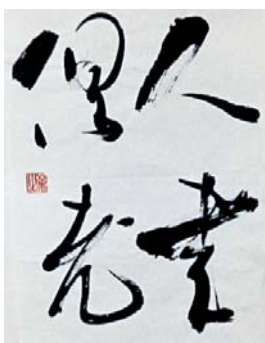 人書
俱老